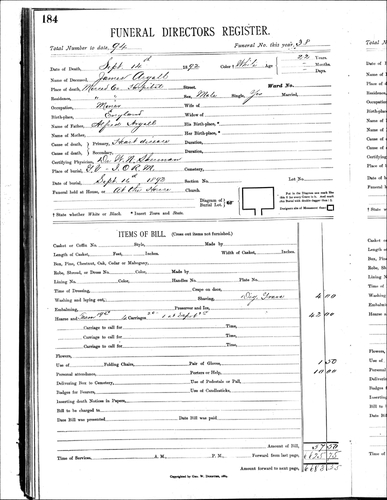 184
FUNERAL DIRECTORS REGISTER.
Total Number to date, 94 Funeral No. this year, 38
Date of Death, Sept. 14th 1892 Color † White Age 22 Years
Months
Days.
Name of Deceased, James Argall
Place of death, Merced Co. Hospital Street. Ward No.
Residence, " " Sex, Male Single, Yes Married,
Occupation, Miner Wife of
Birth-place, England Widow of
Name of Father, Alfred Argall His Birth-place, *
Name of Mother, Her Birth-place, *
Cause of death, Primary, Heart disease Duration,
Cause of death, Secondary, Duration,
Certifying Physician, Dr. W. N. Sherman
Place of burial, Cemetery,
Date of burial, Sept. 16th 1892
Funeral held at House, or At the House Church
Diagram of Burial Lot
Put in the Diagram one mark
Designate site of Monument thus
† State whether White or Black. * Insert Town and State.
ITEMS OF BILL. (Cross out items not furnished.)
Casket or Coffin No. Style, Made by
Length of Casket, Feet, Inches. Width of Casket, Inches.
Box, Pine, Chestnut, Oak, Cedar or Mahogany,
Robe, Shroud, or Dress No. Color, Made by
Lining No. Color, Handles No. Plate No.
Time of Dressing, Came on door,
Washing and laying out, Shaving, 4 00
Embalming, Preserver and Ice,
Hearse and 6 Carriages 42 00
Carriage to call for Time,
Carriage to call for Time,
Carriage to call for Time,
Carriage to call for Time,
Flowers,
Use of Folding Chairs, Pair of Gloves, 1 50
Personal attendance, Porters or Help, 10 00
Delivering Box to Cemetery, Use of Pedestals or Pall,
Badges for Bearers, Use of Candlesticks,
Inserting death Notices in Papers,
Bill to be charged to
Date Bill was presented Date Bill was paid
Amount of Bill, 57 50
Time of Services, A. M., P. M., Forward from last page,
Amount forward to next page,